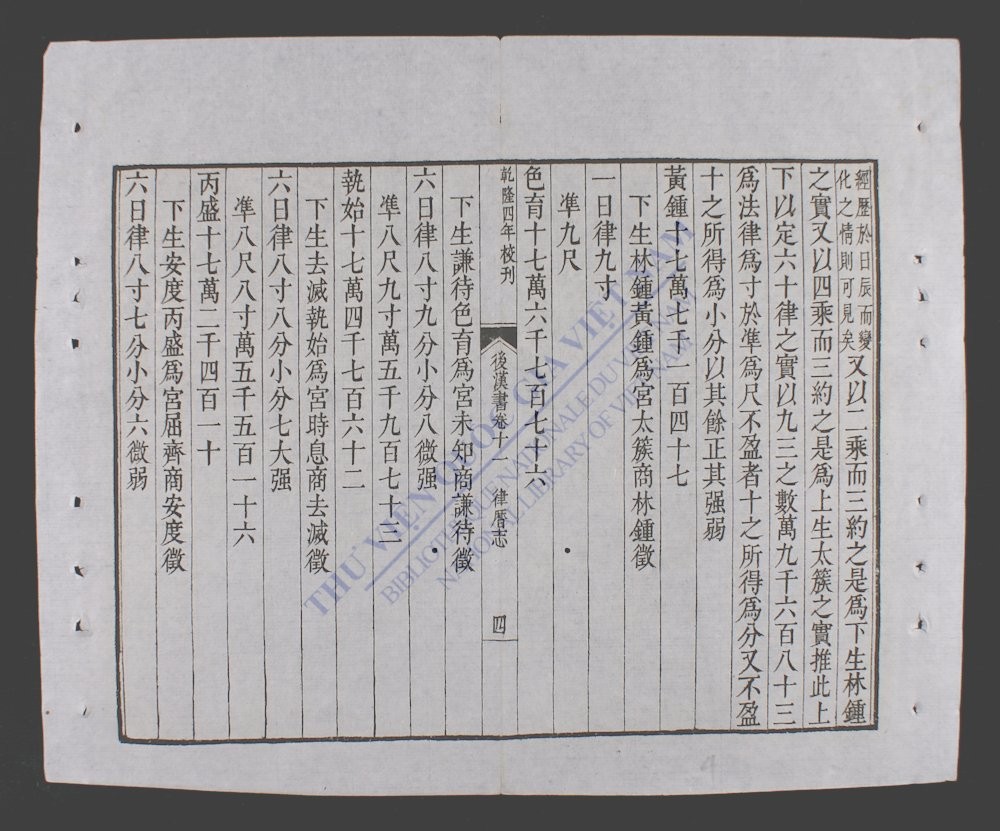 經歷於日辰而變
化之情則可見矣
又以二乘而三約之是爲下生林鍾
之實又以四乘而三約之是爲上生太簇之實推此上
下以定六十律之實以九三之數萬九千六百八十三
爲法律爲寸於準爲尺不盈者十之所得爲分又不盈
十之所得爲小分以其餘正其强弱
黃鍾十七萬七千一百四十七
下生林鍾黃鍾爲宮太簇商林鍾徵
一日律九寸
準九尺
色育十七萬六千七百七十六
乾隆四年校刊
後漢書卷十一 律厯志 四
下生謙待色育爲宮未知商謙待徵
六日律八寸九分小分八微强
準八尺九寸萬五千九百七十三
執始十七萬四千七百六十二
下生去滅執始爲宮時息商去滅徵
六日律八寸八分小分七大强
準八尺八寸萬五千五百一十六
丙盛十七萬二千四百一十
下生安度丙盛爲宮屈齊商安度徵
六日律八寸七分小分六微弱
THƯ VIỆN QUỐC GIA VIỆT NAM
BIBLIOTHEQUE NATIONALE DU VIETNAM
NATIONAL LIBRARY OF VIETNAM